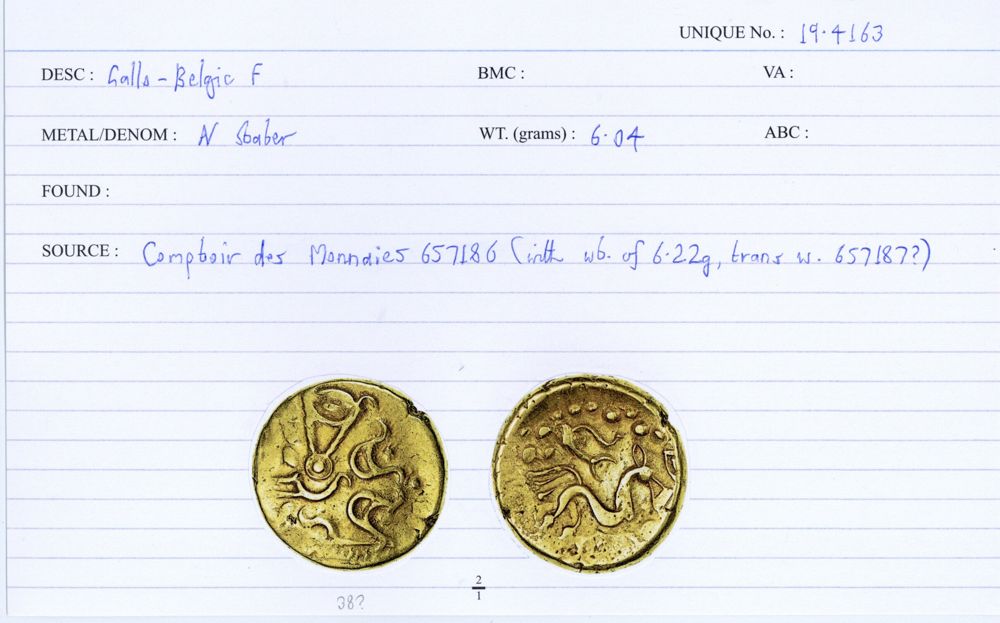 UNIQUE No. : 19.4163
DESC : Gallo-Belgic F BMC : VA :
METAL/DENOM : N stater WT. (grams) : 6.04 ABC :
FOUND :
SOURCE : Comptoir des Monnaies 657186 (with wt. of 6.22g, trans w. 657187?)
2
1
38?